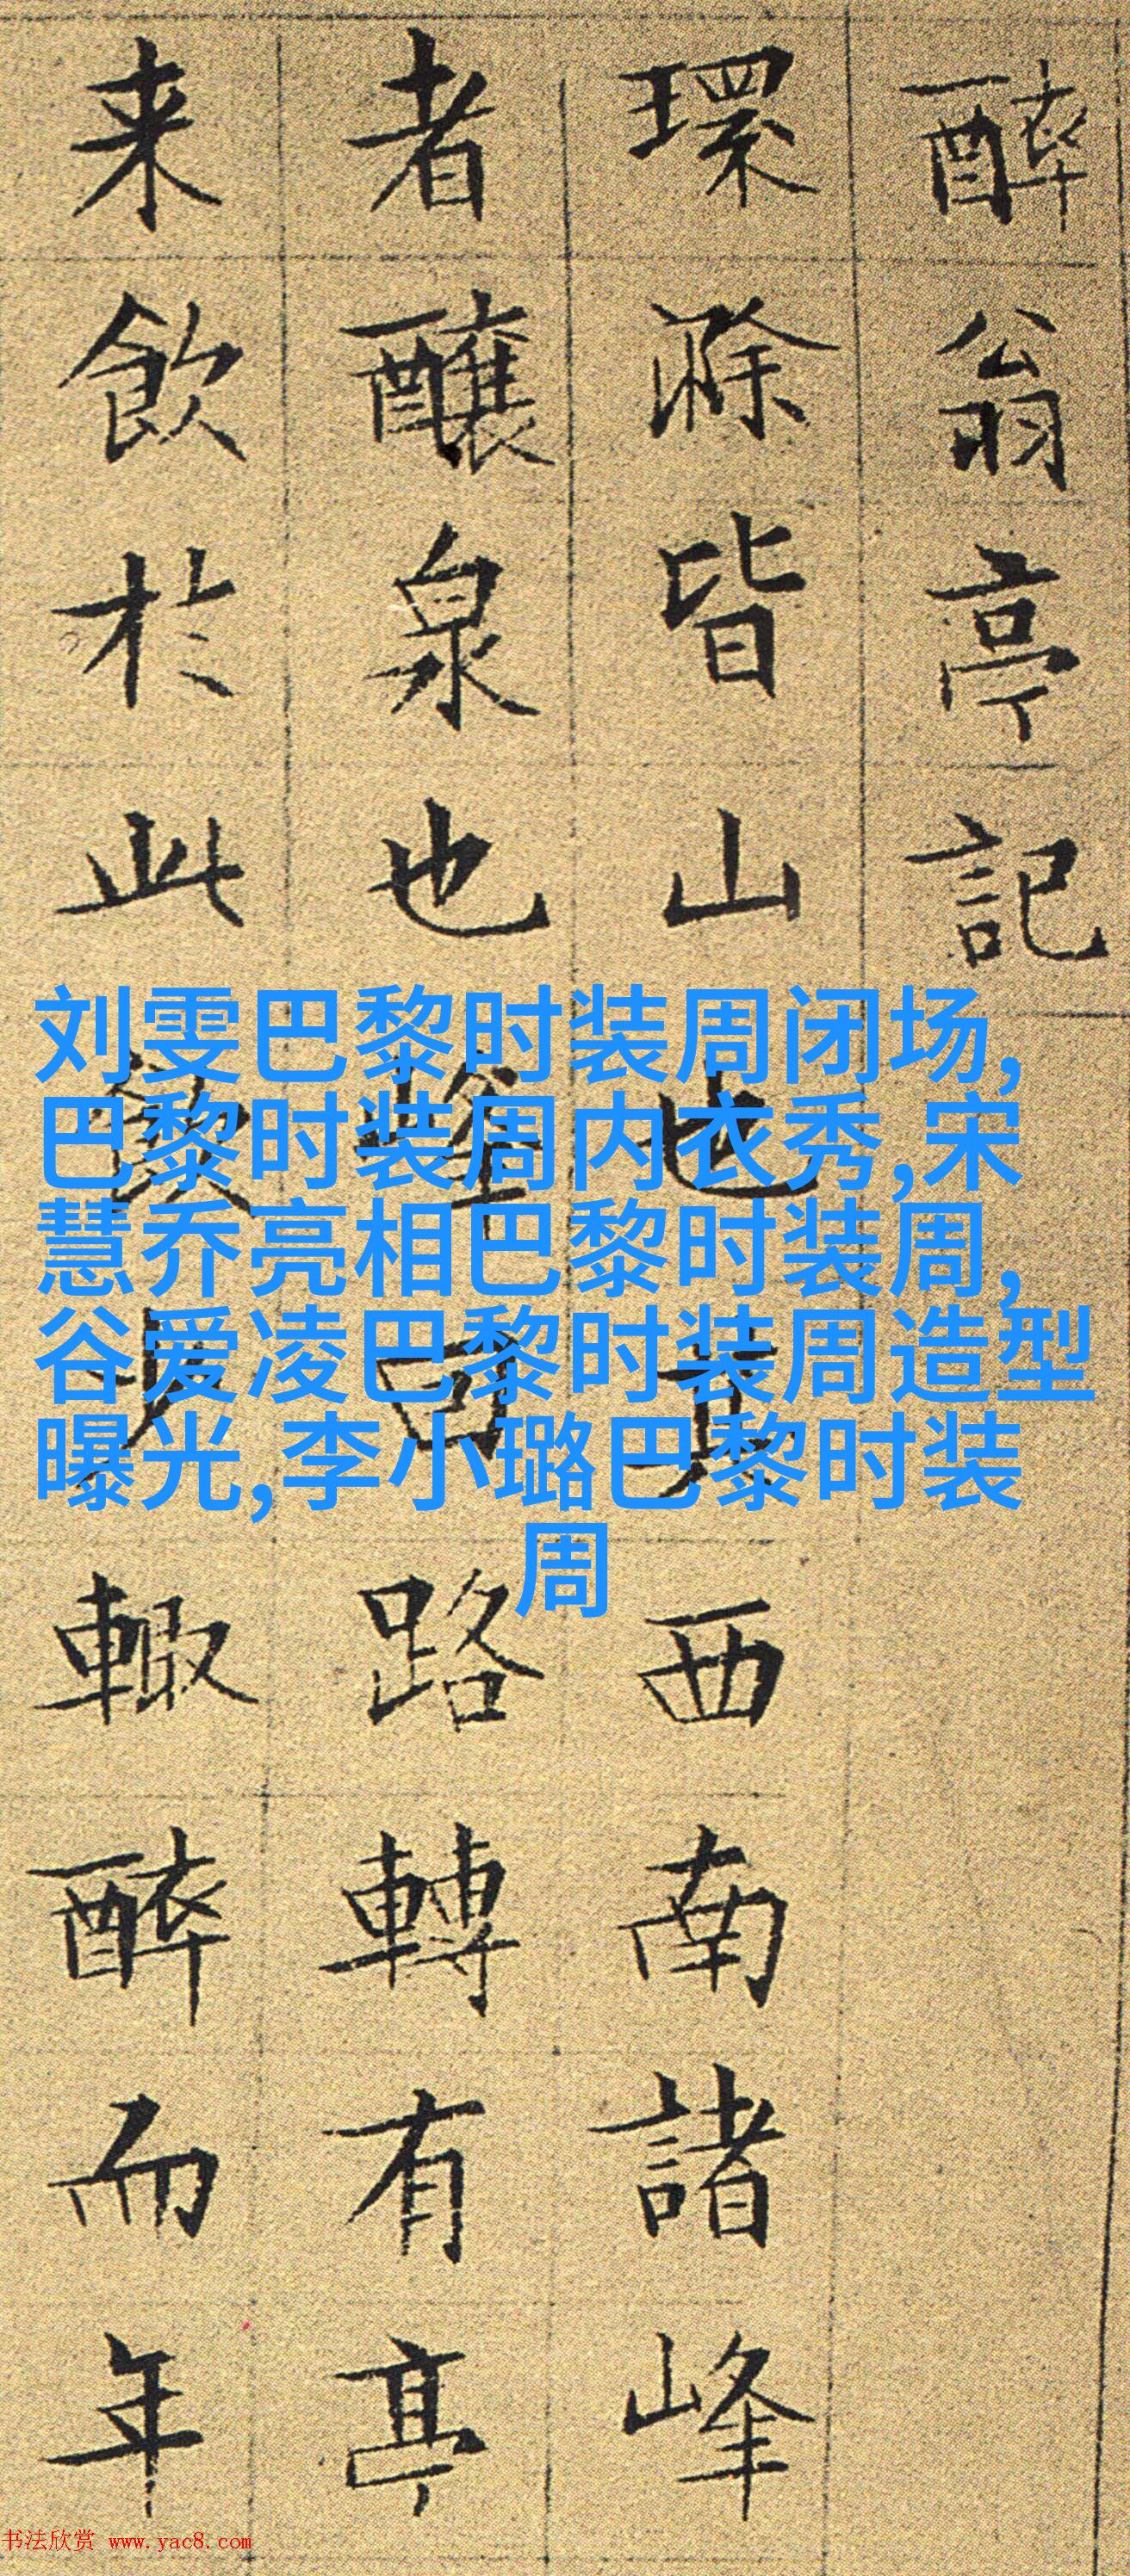 醉翁亭記
環滁皆山也其西南諸峰
者釀泉也峰回路轉有亭
来飲於此飲少輒醉而年
刘雯巴黎时装周闭场,
巴黎时装周内衣秀,宋
慧乔亮相巴黎时装周,
谷爱凌巴黎时装周造型
曝光,李小璐巴黎时装
周
书法欣赏 www.yac8.com